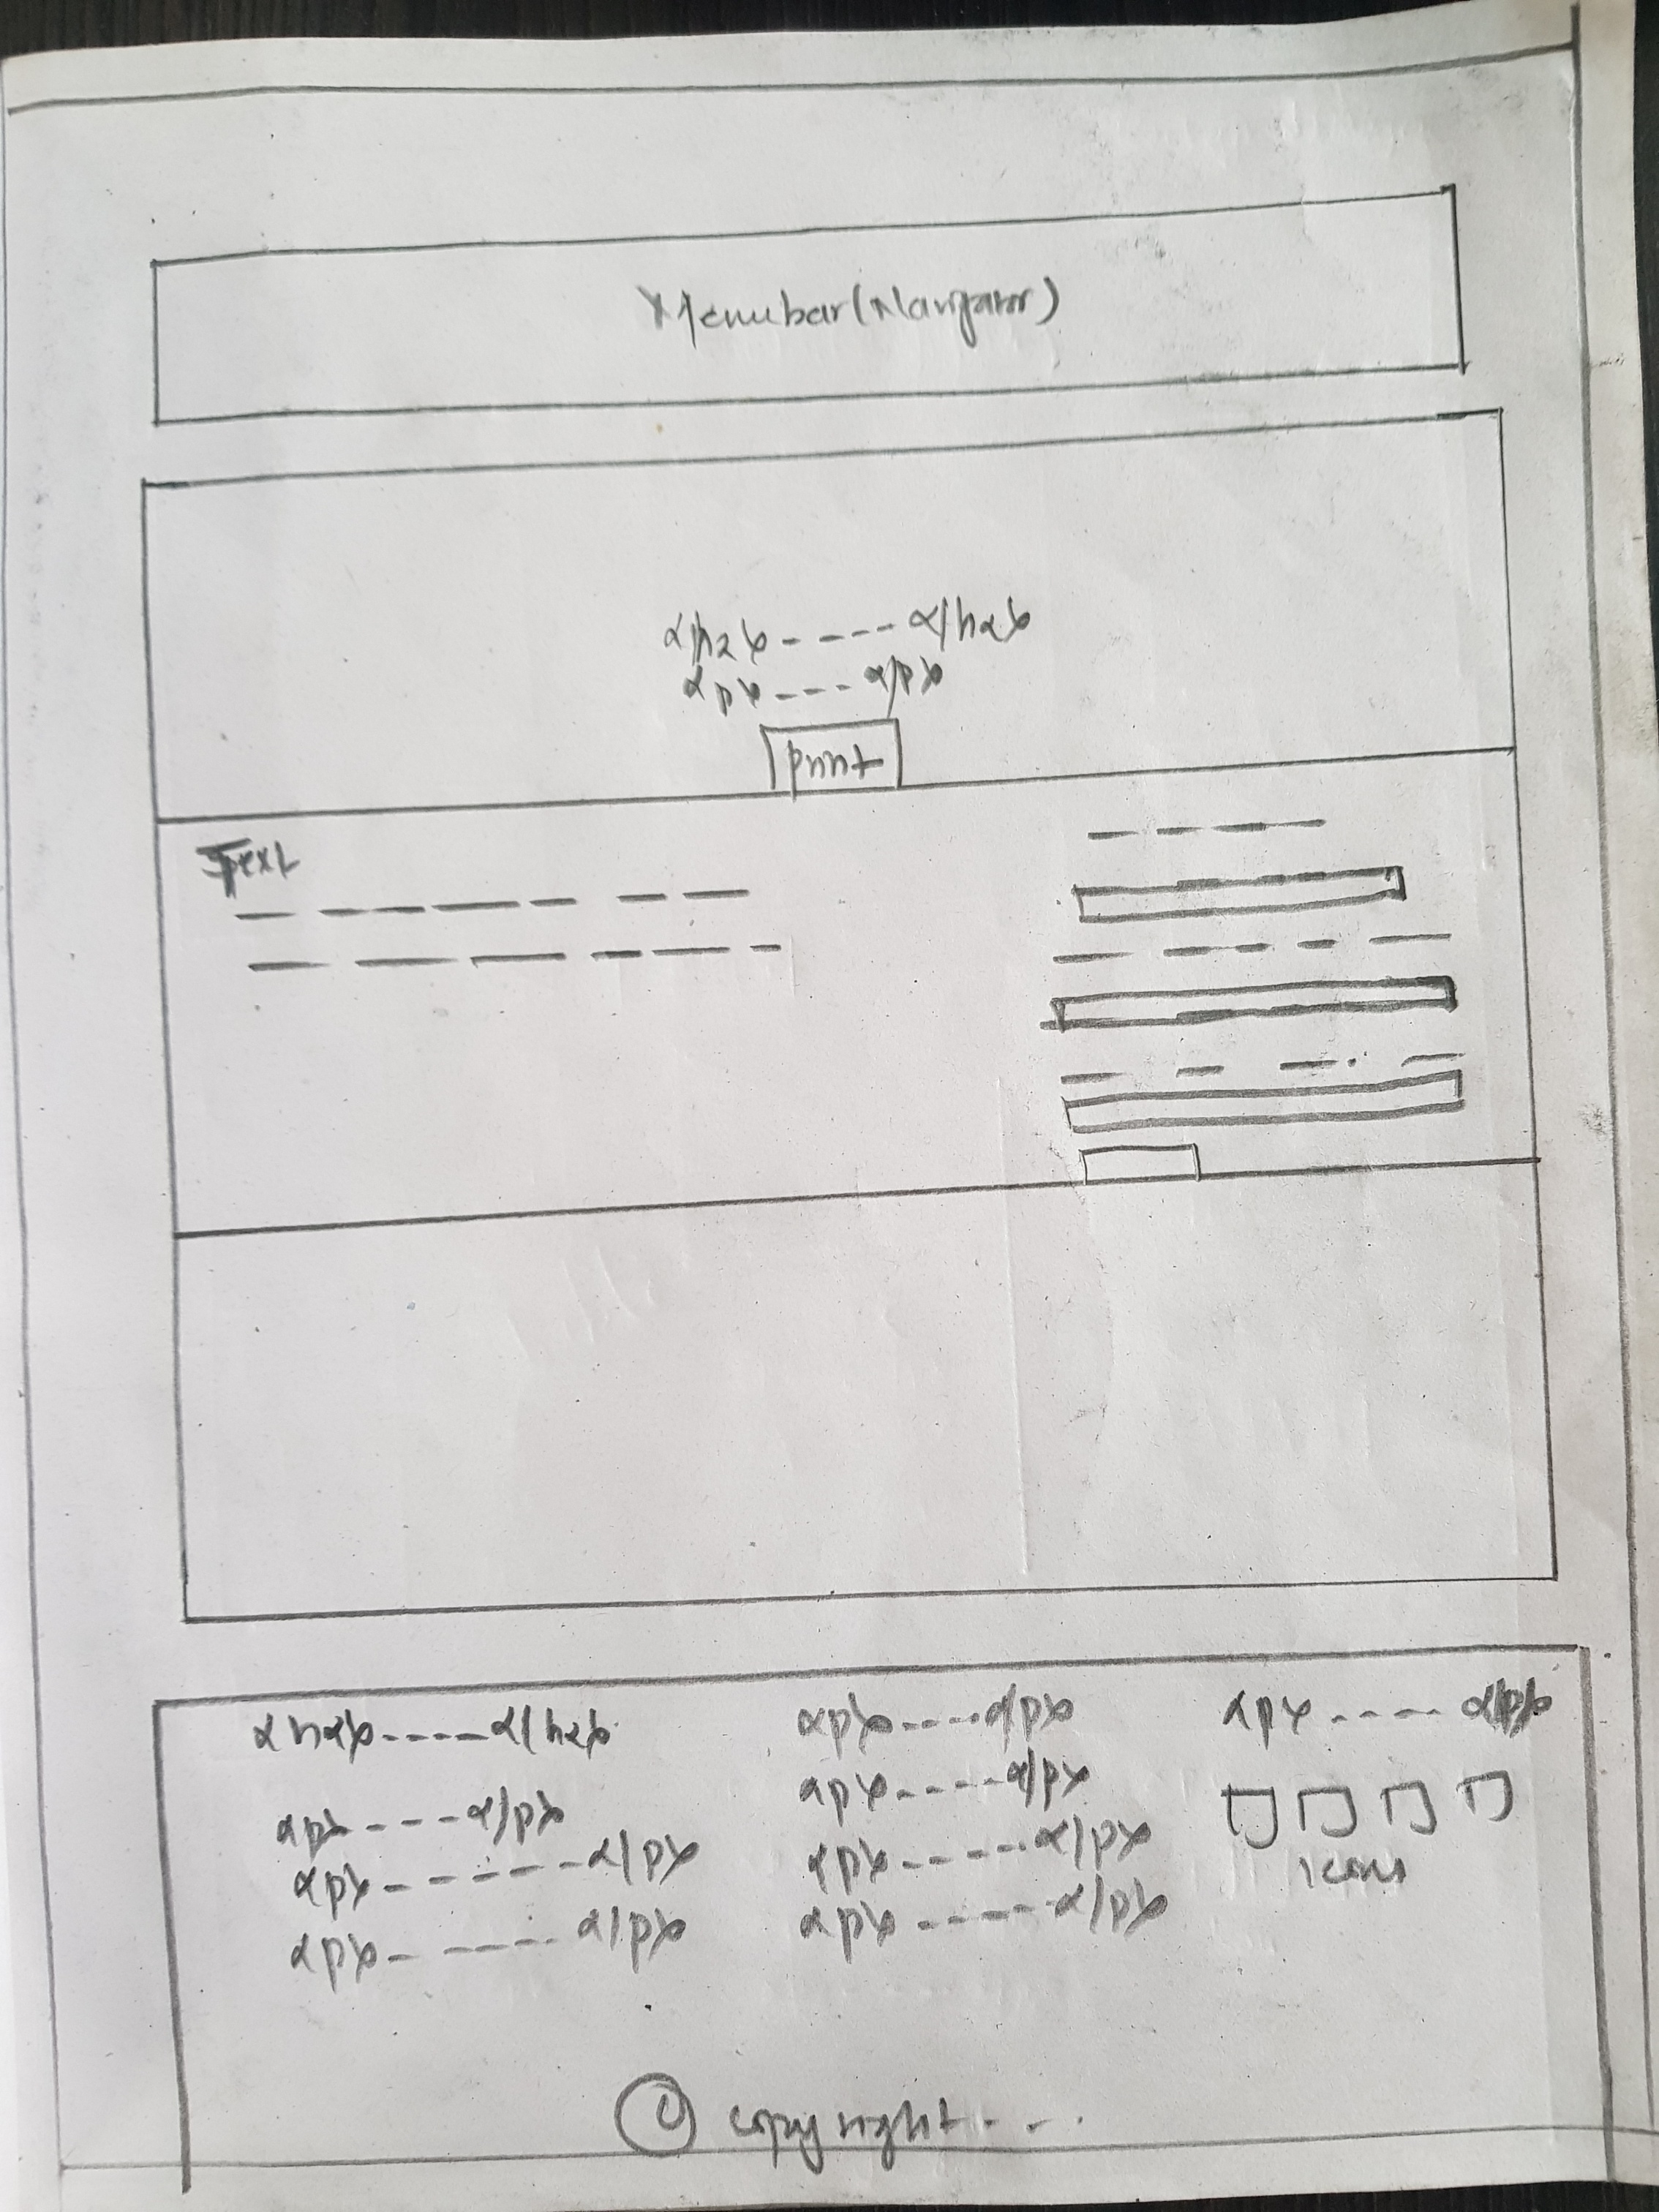 Menubar(Navigator)
<h2> - - - - </h2>
<p> - - - </p>
print
Text
<h2> - - - - </h2>
<p> - - - - </p>
<p> - - - - - - </p>
<p> - - - - - </p>
<p> - - - - </p>
<p> - - - - </p>
<p> - - - - - </p>
<p> - - - - </p>
<p> - - - - </p>
icons
© copyright - - .